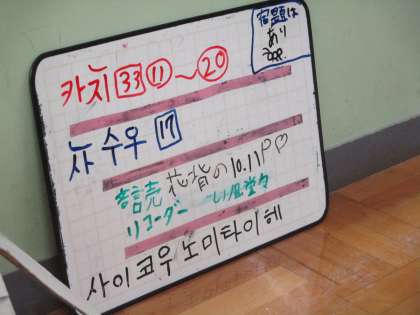 宿題は
あり
카지 33 ⑪～⑳
사 수우 17
音読 花背の10.11P
リコーダー 堂々
사이코우노미타이헤